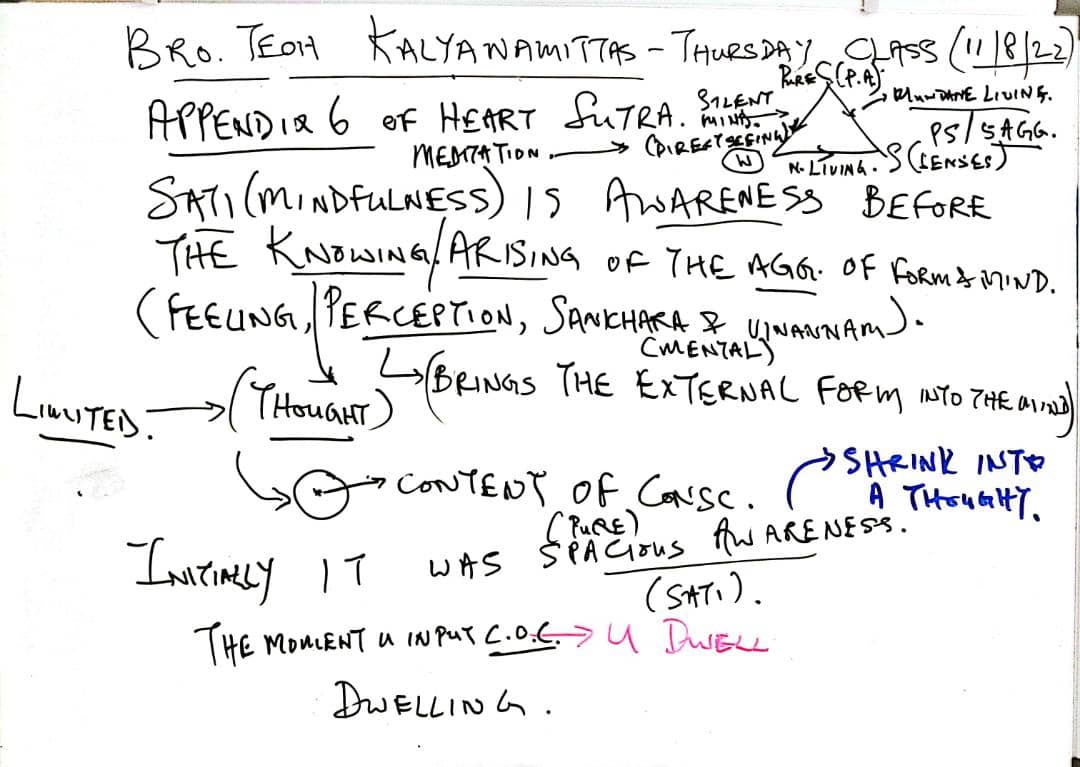 BRO. TEOH KALYANAMITTAS - THURSDAY CLASS (11/8/22)
PURE S (P.A)
MUNDANE LIVING.
APPENDIX 6 OF HEART SUTRA. SILENT MIND.
PS/5AGG.
MEDITATION. → (DIRECT SEEING)
W N. LIVING. S (SENSES)
SATI (MINDFULNESS) IS AWARENESS BEFORE
THE KNOWING/ARISING OF THE AGG. OF FORM & MIND.
(FEELING, PERCEPTION, SANKHARA & VINANNAM).
(MENTAL)
LIMITED. → (THOUGHT) → (BRINGS THE EXTERNAL FORM INTO THE MIND)
→ CONTENT OF CONSC. → SHRINK INTO
A THOUGHT.
(PURE)
INITIALLY IT WAS SPACIOUS AWARENESS.
(SATI).
THE MOMENT U INPUT C.O.C. → U DWELL
DWELLING.